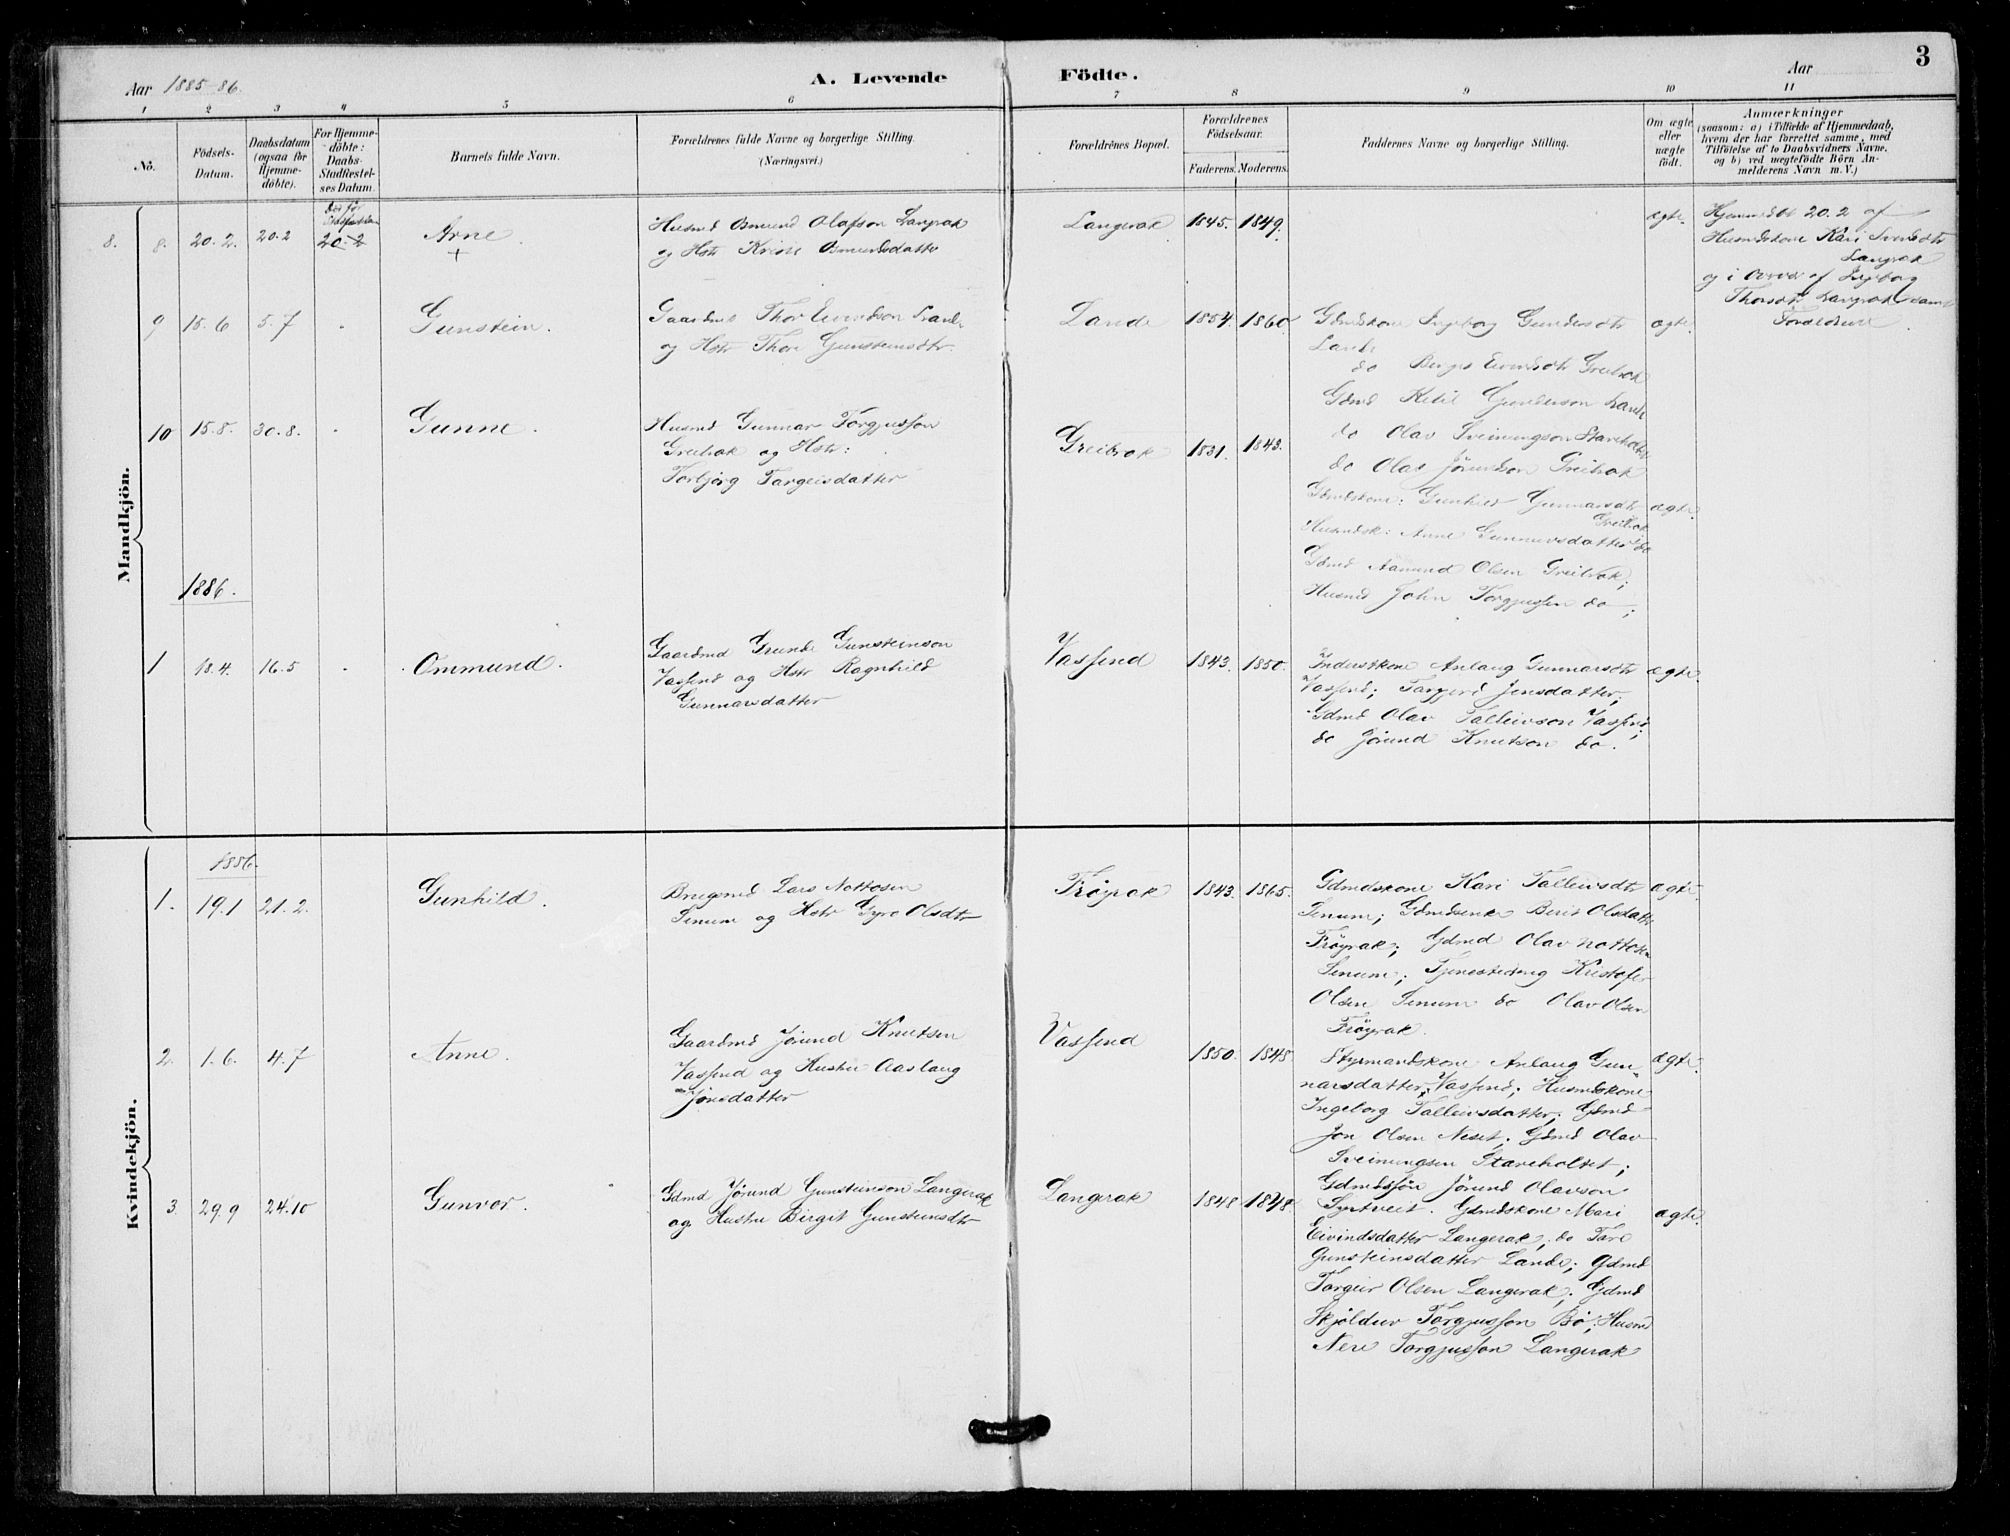 3
Aar 1885-86.
A. Levende Födte.
Aar
1 2 3 4 5 6 7 8 9 10 11
No.
Födsels-Datum.
Daabsdatum (ogsaa for Hjemme-döbte).
For Hjemme-döbte: Daabs-Stadfæstel-ses Datum.
Barnets fulde Navn.
Forældrenes fulde Navne og borgerlige Stilling.
(Næringsvei.)
Forældrenes Bopæl.
Forældrenes Födselsaar.
Faderens. Moderens.
Faddernes Navne og borgerlige Stilling.
Om ægte eller uægte födt.
Anmærkninger
(saasom: a) i Tilfælde af Hjemmedaab,
hvem der har forrettet samme, med
Tilföielse af to Daabsvidners Navne,
og b) ved uægtefödte Börn An-
melderens Navn m. V.)
Mandkjön.
8. 8. 20.2. 20.2 20.2
død før
Arne +
Husmd Omund Olafson Langerak
og Hstr Kristi Omundsdatter
Langerak 1845. 1849. ægte.
Hjemmedøbt 20.2 af
Husmdskone Kari Svensdtr
Langrak
og i Overvær af Ingeborg
Thorsdtr Langerak samt
Forældrene.
9 15.6 5.7 "
Gunstein.
Gaardmd Thor Eivindson Lande
og Hstr Thore Gunsteinsdtr.
Lande 1854. 1860
Gdmdskone Ingeborg Gundersdtr ægte.
Lande
do Eivindsdtr Greibrok
Gdmd Ketil Gunderson Lande
do Olav Sveinungson Stareholtet
do Olav Jørundson Greibrok
10 15.8. 30.8. "
Gunne.
Husmd Gunnar Torgjusson
Greibrok og Hstr:
Torbjørg Targeisdatter
Greibrok 1831. 1843.
Gdmdskone: Gunhild Gunnarsdtr ægte.
Greibrok
Husmdsk: Anne Gunnarsdatter do
Gdmd Aanund Olsen Greibrok;
Husmd John Torgjussen do;
1886.
1 18.4. 16.5 "
Ommund.
Gaardmd Grunde Gunsteinson
Vassend og Hstr Ragnhild
Gunnarsdatter
Vassend 1843. 1850.
Inderstkone Anlaug Gunnarsdtr ægte.
Vassend; Targjerd Jensdatter;
Gdmd Olav Talleivson Vassend;
do Jørund Knutson do.
Kvindekjön.
1886.
1. 19.1 21.2.
Gunhild.
Brugsmd Lars Nottosen
Senum og Hstr Gyro Olsdtr
Frøyrak 1843. 1865.
Gdmdskone Kari Talleivsdtr ægte.
Senum; Gdmdsenke Berit Olsdatter
Frøyrak; Gdmd Olav Nottosen
Senum; Tjenestedreng Kristofer
Olsen Senum do Olav Olsen
Frøyrak.
2. 1.6. 4.7
Anne.
Gaardmd Jørund Knutsen
Vassend og Hustru Aaslaug
Jonsdatter
Vassend 1850. 1848
Styrmandskone Anlaug Gun- ægte.
narsdatter, Vassend; Husmdskone
Ingeborg Talleivsdatter; Gdmd
Jon Olsen Neset; Gdmd Olav
Sveinungsen Stareholtet;
Gdmdssøn Jørund Olavson
Syrtveit.
3. 29.9 24.10
Gunvor.
Gdmd Jørund Gunsteinson Langerak
og Hustru Birgit Gunsteinsdtr
Langerak 1848 1848.
Gdmdskone Mari ægte.
Eivindsdatter Langerak; do Tore
Gunsteinsdatter Lande; Gdmd
Torgeir Olsen Langerak; Gdmd
Skjøldulv Torgjusson Bø; Husmd
Nere Torgjusson Langerak